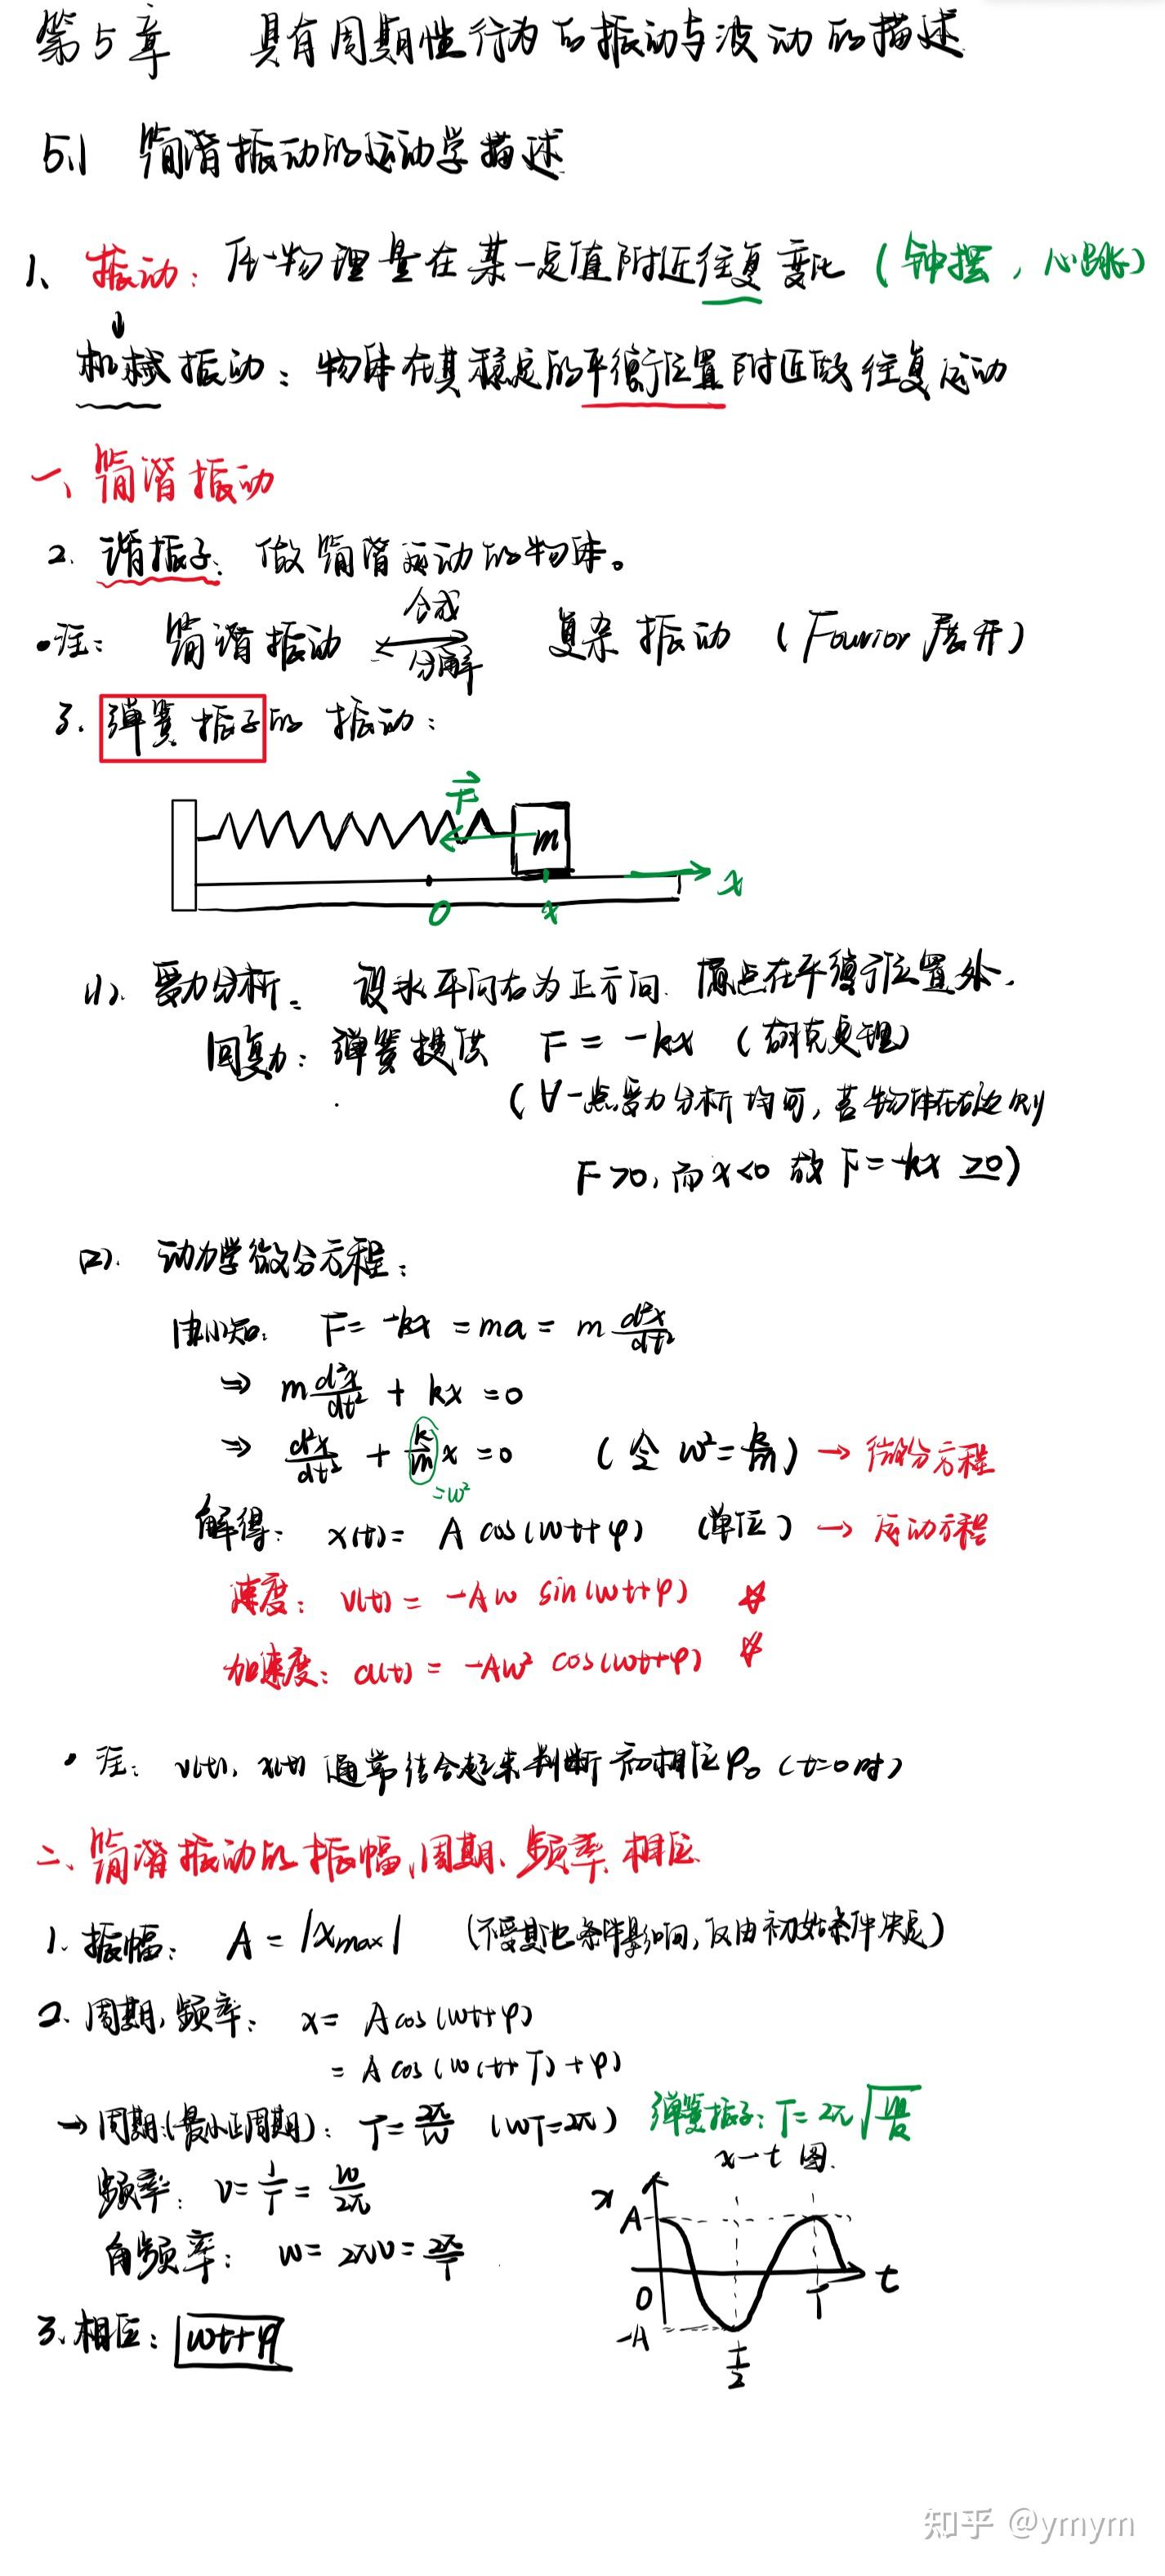 第5章 具有周期性行为的振动与波动的描述
5.1 简谐振动的运动学描述
1、振动：任一物理量在某一定值附近往复变化（钟摆，心跳）
↓
机械振动：物体在其稳定的平衡位置附近做往复运动
一、简谐振动
2. 谐振子：做简谐运动的物体。
•注：简谐振动 合成 ⇌ 分解 复杂振动（Fourior展开）
3. 弹簧振子的振动：
F⃗
m
O x x
(1). 受力分析。设水平向右为正方向. 原点在平衡位置处.
回复力：弹簧提供 F = -kx （胡克定理）
（∀一点受力分析均可，若物体在左边则
F>0，而x<0 故 F=-kx ≥0）
(2). 动力学微分方程：
由(1)知: F= -kx = ma = m d²x/dt²
⇒ m d²x/dt² + kx = 0
⇒ d²x/dt² + k/m x = 0 （令 ω²=k/m）→ 微分方程
=ω²
解得：x(t)= A cos(ωt+φ) （单位）→ 运动方程
速度：v(t) = -Aω sin(ωt+φ) ☆
加速度：a(t) = -Aω² cos(ωt+φ) ☆
• 注：v(t)，x(t) 通常结合起来判断初相位φ₀（t=0时）
二、简谐振动的振幅、周期、频率、相位
1. 振幅：A = |xmax| （不受其他条件影响，仅由初始条件决定）
2. 周期，频率：x= Acos(ωt+φ)
= A cos(ω(t+T)+φ)
→ 周期(最小正周期)：T= 2π/ω （ωT=2π） 弹簧振子：T= 2π√(m/k)
频率：ν= 1/T = ω/2π
角频率：ω= 2πν= 2π/T
x-t 图.
x
A
O
-A
T/2
T
t
3、相位：ωt+φ
知乎 @ymym